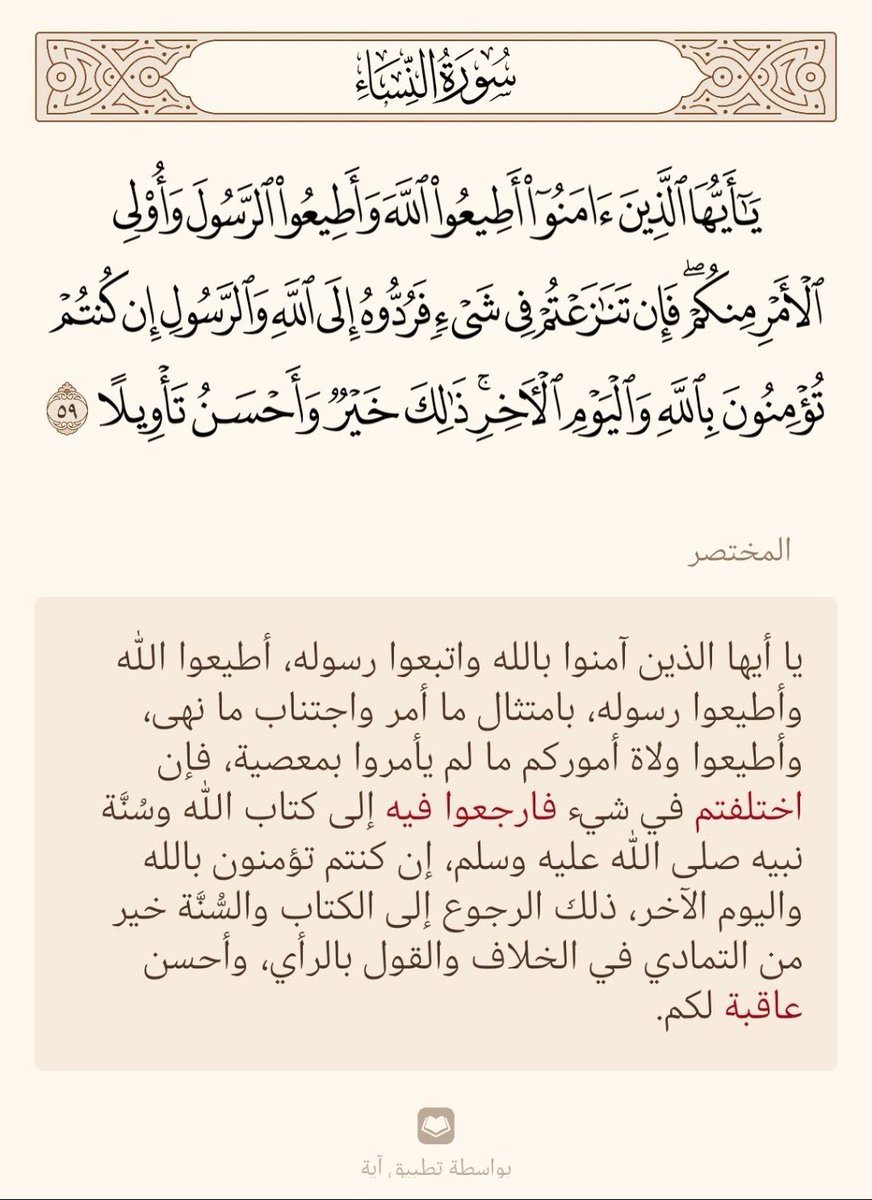 سُورَةُ النِّسَاءِ
يَٰٓأَيُّهَا ٱلَّذِينَ ءَامَنُوٓا۟ أَطِيعُوا۟ ٱللَّهَ وَأَطِيعُوا۟ ٱلرَّسُولَ وَأُو۟لِى
ٱلْأَمْرِ مِنكُمْ ۖ فَإِن تَنَٰزَعْتُمْ فِى شَىْءٍ فَرُدُّوهُ إِلَى ٱللَّهِ وَٱلرَّسُولِ إِن كُنتُمْ
تُؤْمِنُونَ بِٱللَّهِ وَٱلْيَوْمِ ٱلْـَٔاخِرِ ۚ ذَٰلِكَ خَيْرٌ وَأَحْسَنُ تَأْوِيلًا ٥٩
المختصر
يا أيها الذين آمنوا بالله واتبعوا رسوله، أطيعوا الله
وأطيعوا رسوله، بامتثال ما أمر واجتناب ما نهى،
وأطيعوا ولاة أموركم ما لم يأمروا بمعصية، فإن
اختلفتم في شيء فارجعوا فيه إلى كتاب الله وسُنَّة
نبيه صلى الله عليه وسلم، إن كنتم تؤمنون بالله
واليوم الآخر، ذلك الرجوع إلى الكتاب والسُّنَّة خير
من التمادي في الخلاف والقول بالرأي، وأحسن
عاقبة لكم.
بواسطة تطبيق آية